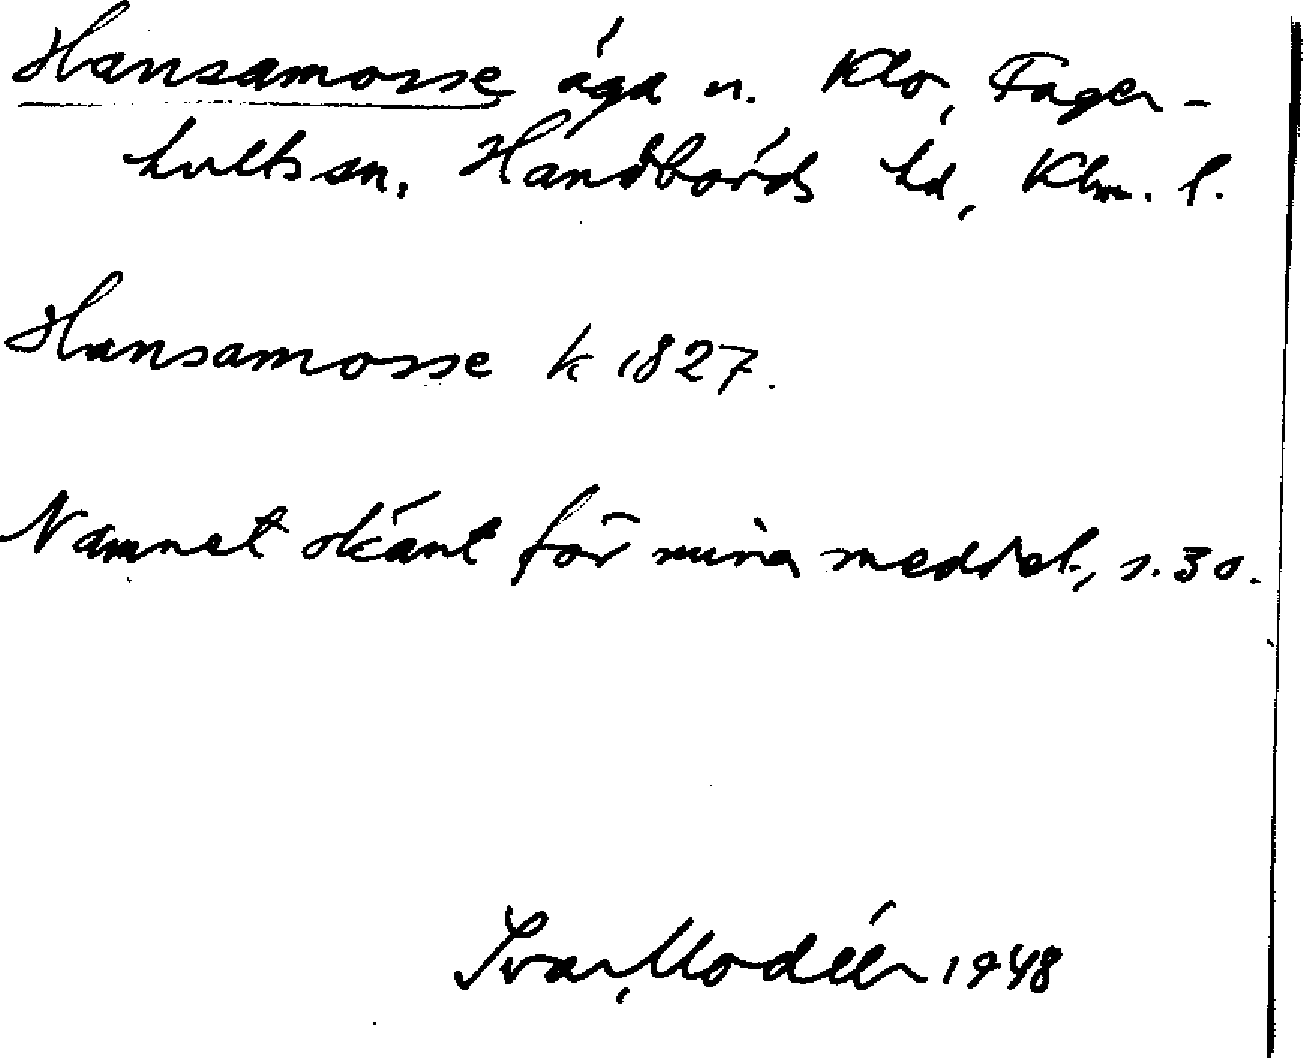 Hansamosse äga u. Klo, Fager-
hults sn, Handbörds hd, Klm. l.
Hansamosse k 1827.
Namnet okänt för mina meddel., s. 30.
Ivar Modéer 1948